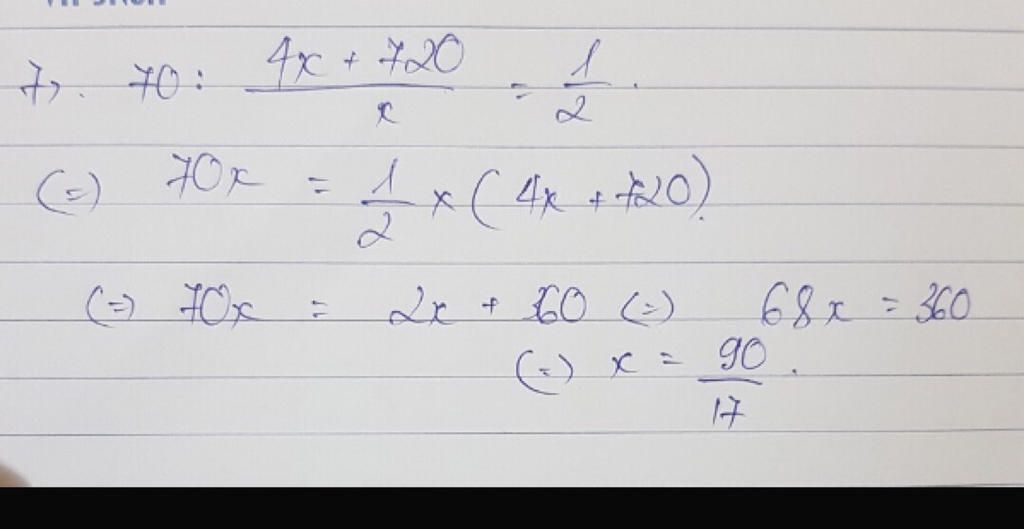 7). 70 : (4x + 720)/x = 1/2.
(=) 70x = 1/2 x (4x + 720).
(=) 70x = 2x + 360 (=) 68x = 360
(=) x = 90/17.